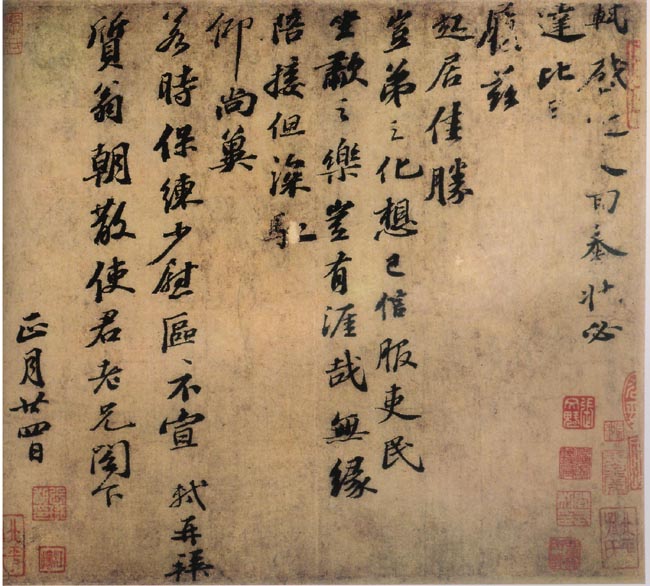 軾啟近人回奉狀必
達比日
履茲
起居佳勝
豈弟之化想已信服吏民
坐歗之樂豈有涯哉無緣
陪接但深馳
仰尚冀
若時保練少慰區〻不宣 軾再拜
質翁朝散使君老兄閤下
正月廿四日